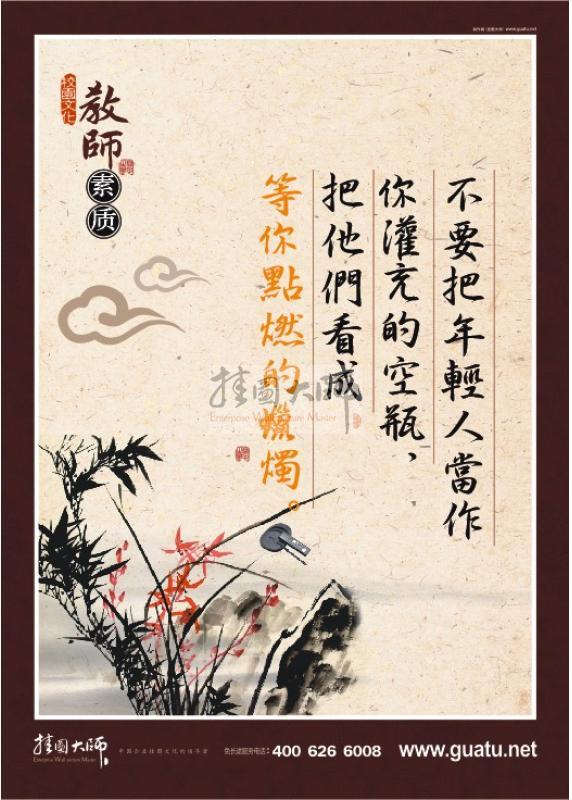 挂图大师 www.guatu.net
校园文化
教師
素质
不要把年輕人當作
你灌充的空瓶，
把他們看成
等你點燃的蠟燭。
挂圖大师
Enterprise Wall picture Master
挂圖大师
Enterprise Wall picture Master
中国企业挂图文化的领导者
免长途服务电话：400 626 6008
www.guatu.net